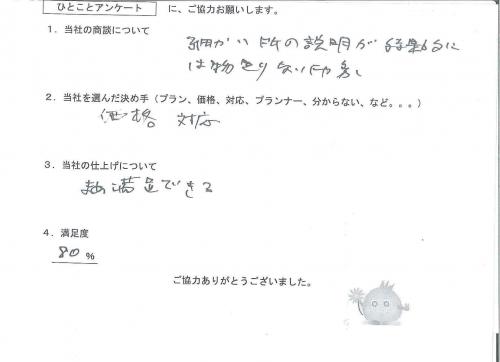 ひとことアンケート に、ご協力お願いします。
1．当社の商談について
細かい所の説明が
は物足りない印象
2．当社を選んだ決め手（プラン、価格、対応、プランナー、分からない、など。。。）
価格 対応
3．当社の仕上げについて
まあ満足できる
4．満足度
80 %
ご協力ありがとうございました。